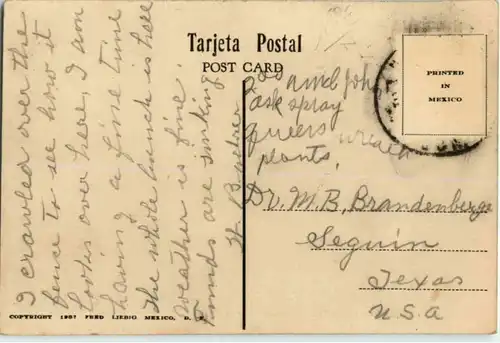 Tarjeta Postal
POST CARD
PRINTED
IN
MEXICO
I crawled over the
fence to see how it
looks over here, I am
having a fine time
The whole bunch is here
weather is fine.
Funds are sinking
and John
ask spray
queers wreath
plants,
Dr. M. B. Brandenberger
Seguin
Texas
U.S.A
COPYRIGHT 1937 FRED LIEBIG MEXICO, D. F.